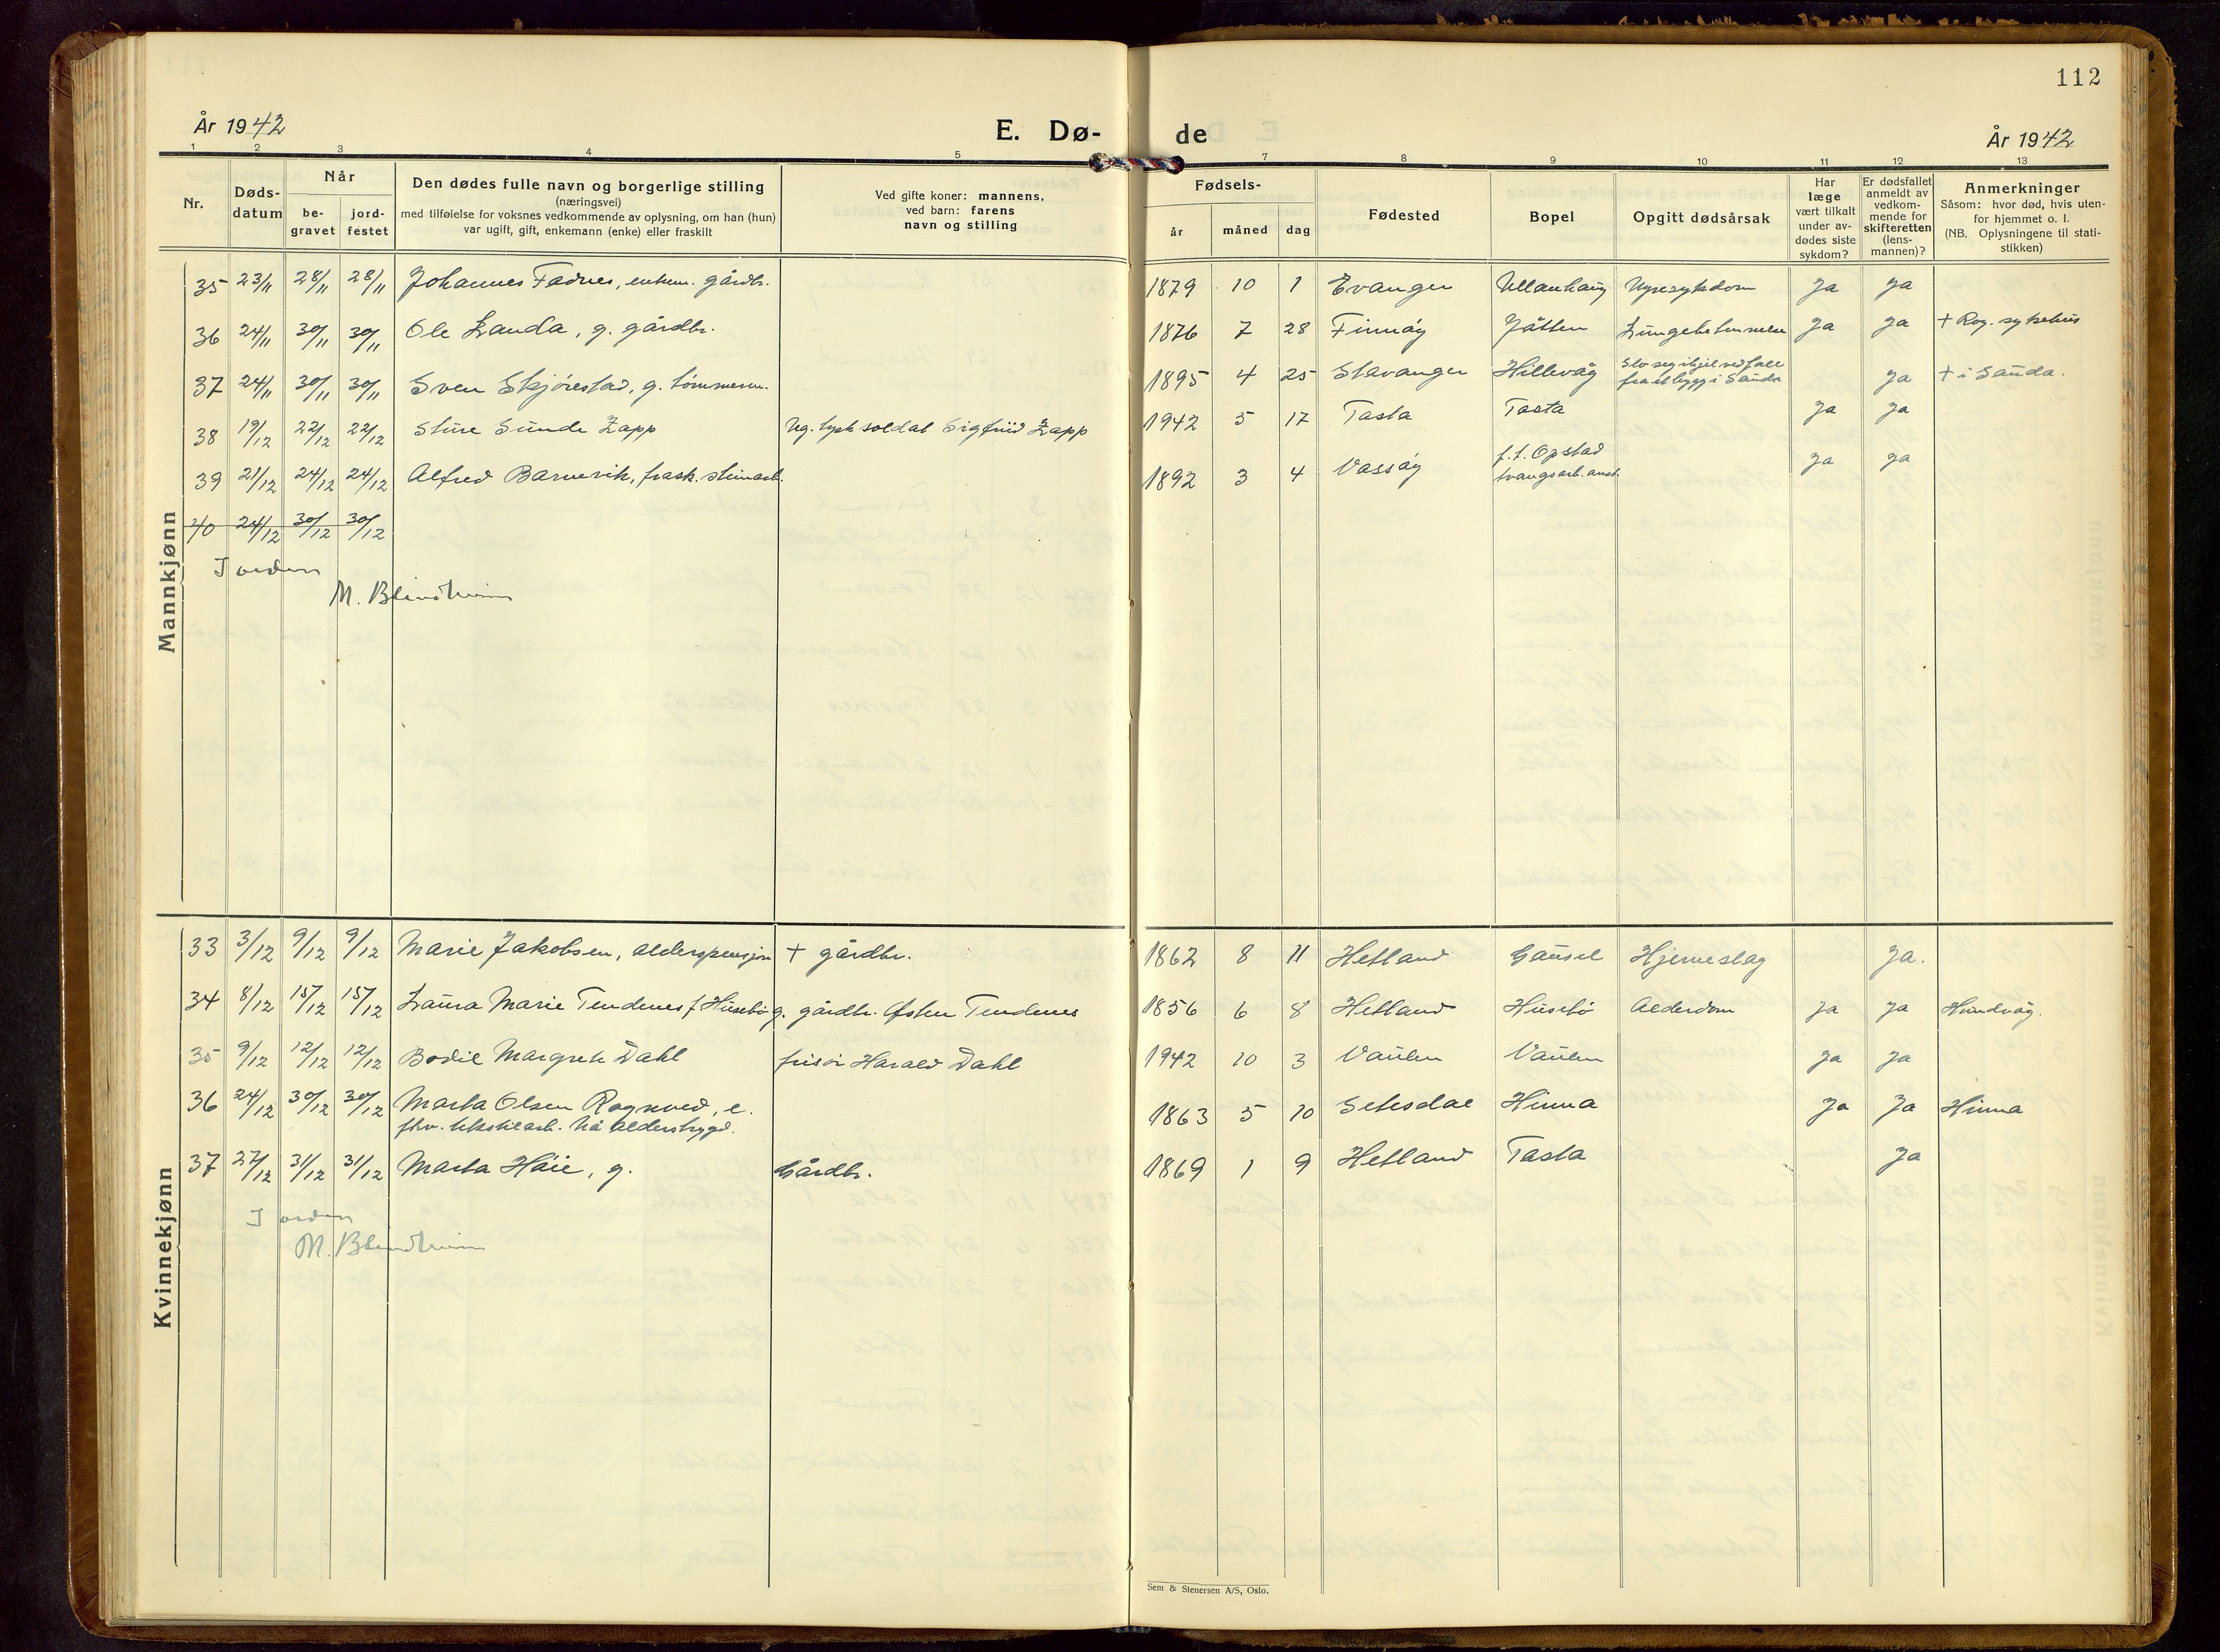 112
År 1942
E. Dø-
de
År 1942
1 2 3 4 5 7 8 9 10 11 12 13
Nr.
Døds-
datum
Når
be-
gravet
jord-
festet
Den dødes fulle navn og borgerlige stilling
(næringsvei)
med tilføielse for voksnes vedkommende av oplysning, om han (hun)
var ugift, gift, enkemann (enke) eller fraskilt
Ved gifte koner: mannens,
ved barn: farens
navn og stilling
Fødsels-
år måned dag
Fødested
Bopel
Opgitt dødsårsak
Har
læge
vært tilkalt
under av-
dødes siste
sykdom?
Er dødsfallet
anmeldt av
vedkom-
mende for
skifteretten
(lens-
mannen)?
Anmerkninger
Såsom: hvor død, hvis uten-
for hjemmet o. l.
(NB. Oplysningene til stati-
stikken)
Mannkjønn
35 23/11 28/11 28/11 Johannes Fadnes, enkem. gårdbr. 1879 10 1 Evanger Ullanhaug Nyresykdom Ja Ja
36 24/11 30/11 30/11 Ole Landa, g. gårdbr. 1876 7 28 Finnøy Jåtten Lungebetennelse Ja Ja + Rog. sykehus
37 24/11 30/11 30/11 Sven Skjørestad, g. tømmerm. 1895 4 25 Stavanger Hillevåg Slo seg ihjel ved fall
fra et bygg i Sauda Ja + i Sauda.
38 19/12 22/12 22/12 Sture Sunde Zapp Ug. tysk soldat Sigfrid Zapp 1942 5 17 Tasta Tasta Ja Ja
39 21/12 24/12 24/12 Alfred Barnevik, frask. steinarb. 1892 3 4 Vassøy f.t. Opstad
tvangsarb. anst. Ja Ja
40 24/12 30/12 30/12
I orden
M. Blindheim
Kvinnekjønn
33 3/12 9/12 9/12 Marie Jakobsen, alderspensjon + gårdbr. 1862 8 11 Hetland Gausel Hjerneslag Ja.
34 8/12 15/12 15/12 Laura Marie Tendenes f Husebø g. gårdbr. Østen Tendenes 1856 6 8 Hetland Husebø Alderdom Ja Ja Hundvåg.
35 9/12 12/12 12/12 Bodil Margrete Dahl frisør Harald Dahl 1942 10 3 Vaulen Vaulen Ja Ja
36 24/12 30/12 30/12 Marta Olsen Rognved, e. 1863 5 10 Setesdal Hinna Ja Ja Hinna
fhv. tekstilarb. nå alderstrygd.
37 27/12 31/12 31/12 Marta Håie, g. Gårdbr. 1869 1 9 Hetland Tasta Ja
I orden
M. Blindheim
Sem & Stenersen A/S, Oslo.